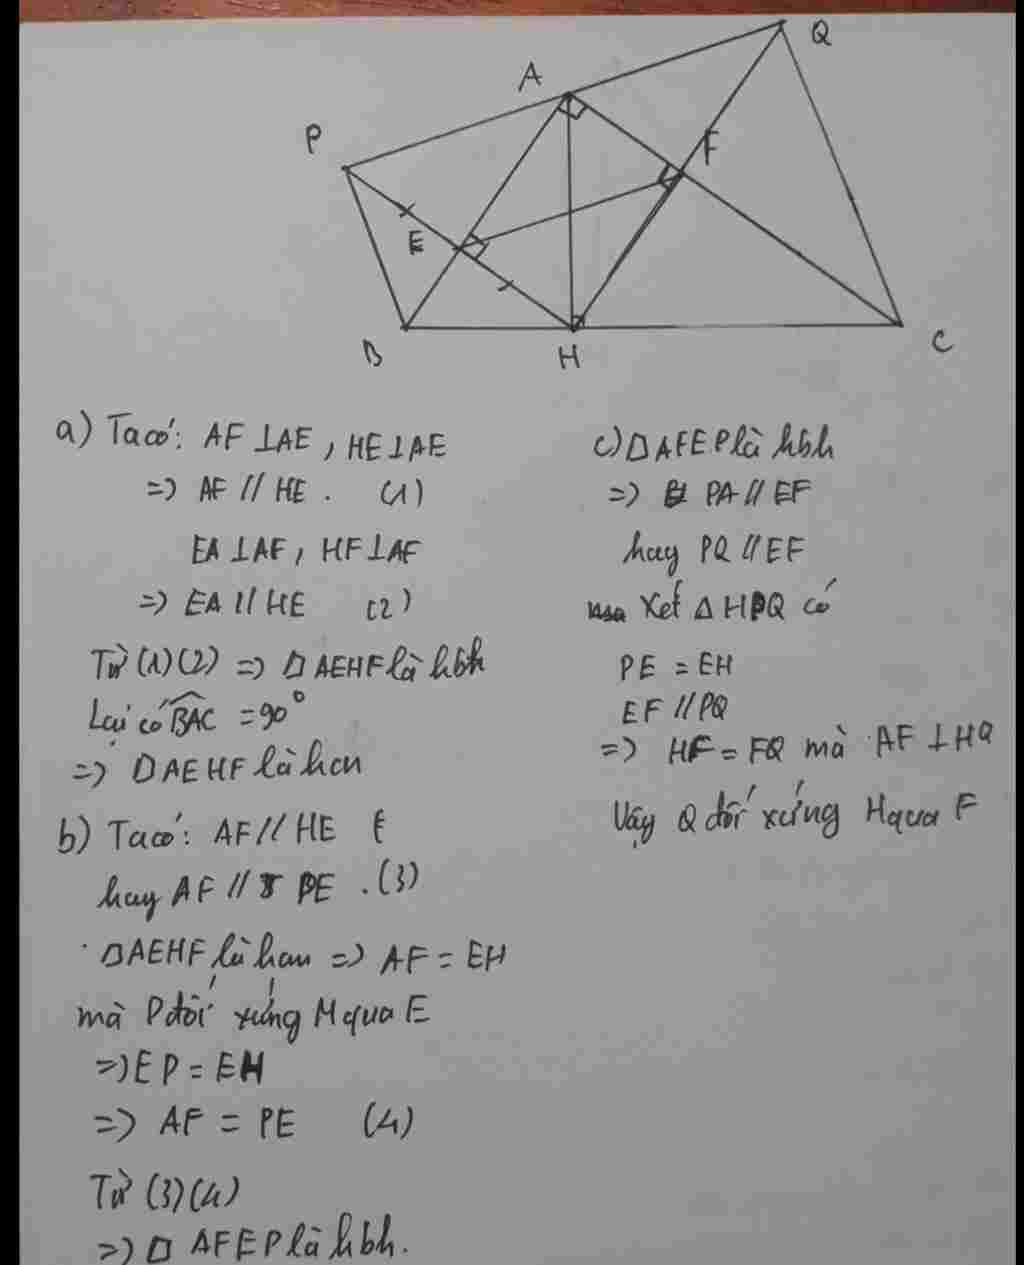 Q
A
P
F
E
B
H
C
a) Ta có: AF ⊥ AE, HE ⊥ AE
=> AF // HE. (1)
EA ⊥ AF, HF ⊥ AF
=> EA // HE (2)
Từ (1)(2) => □ AEHF là hbh
Lại có BAC = 90°
=> □ AEHF là hcn
b) Ta có: AF // HE
hay AF // PE. (3)
□ AEHF là hcn => AF = EH
mà P đối xứng H qua E
=> EP = EH
=> AF = PE (4)
Từ (3)(4)
=> □ AFEP là hbh.
c) □ AFEP là hbh
=> PA // EF
hay PQ // EF
Xét Δ HPQ có
PE = EH
EF // PQ
=> HF = FQ mà AF ⊥ HQ
Vậy Q đối xứng H qua F